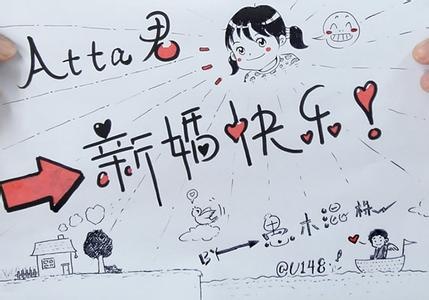 Atta君
新婚快乐!
愚木混株
@U148